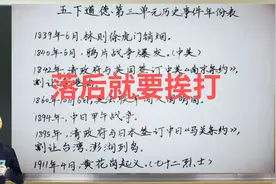 五下道德第三单元历史事件年份表
1839年6月,林则徐虎门销烟。
1840年6月,鸦片战争爆发。(中英)
1842年,清政府与英国签订中英《南京条约》,
割让
落后就要挨打
1860年10月
1894年,中日甲午战争。
1895年,清政府与日本签订中日《马关条约》,
割让台湾、澎湖列岛。
1911年4月,黄花岗起义。(七十二烈士)